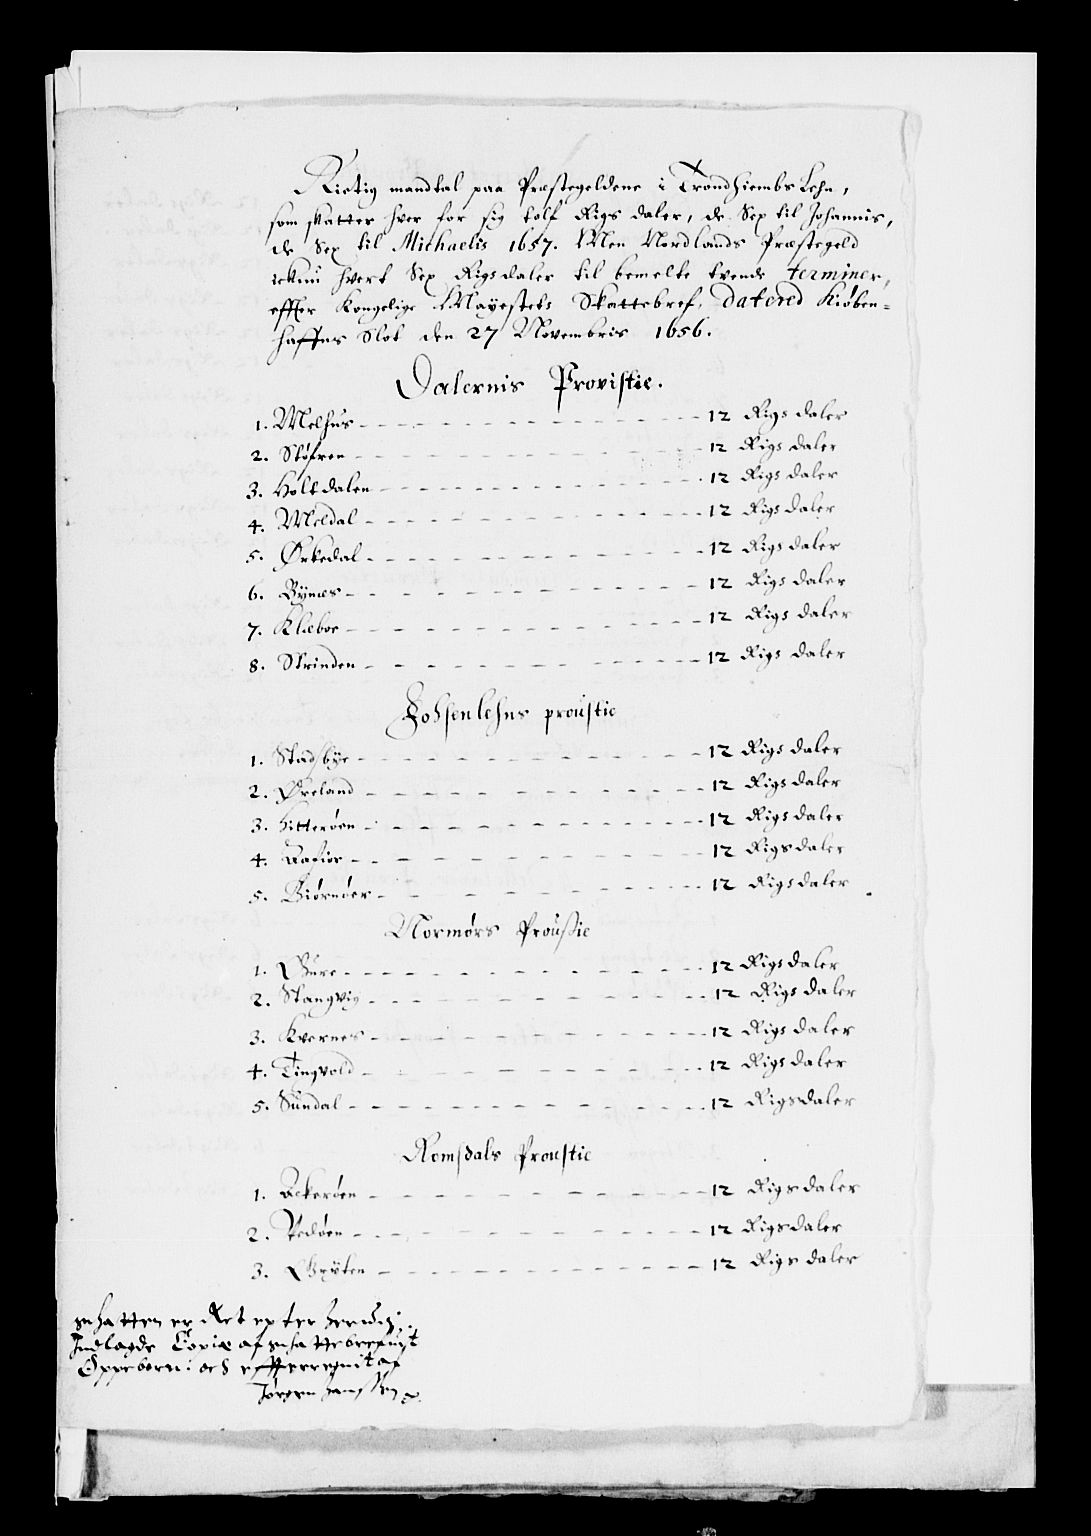 Rictig mandtal paa Præstegeldene i Trondhiembs Lehn,
som skatter hver for sig tolf Rigs daler, de Sex til Johannis,
de Sex til Michaelis 1657. Men Nordlands Præstegeld
ickun hvert Sex Rigsdaler til bemelte tvende terminer,
effter Kongelige Mayestets Skattebref, datered Kiøben-
haffns Slot den 27 Novembris 1656.
Dalernis Provistie.
1. Melhus - 12 Rigs daler
2. Støfren - 12 Rigs daler
3. Holtdalen - 12 Rigs daler
4. Meldal - 12 Rigs daler
5. Ørkedal - 12 Rigs daler
6. Bynæs - 12 Rigs daler
7. Klæboe - 12 Rigs daler
8. Strinden - 12 Rigs daler
Fohsenlehns proustie
1. Stadsbye - 12 Rigs daler
2. Øreland - 12 Rigs daler
3. Hitterøen - 12 Rigs daler
4. Aafior - 12 Rigsdaler
5. Biørnøer - 12 Rigsdaler
Normørs Proustie
1. Bure - 12 Rigsdaler
2. Stangvig - 12 Rigs daler
3. Kvernes - 12 Rigs daler
4. Tingvold - 12 Rigs daler
5. Sundal - 12 Rigsdaler
Romsdals Proustie
1. Ackerøen - 12 Rigsdaler
2. Vedøen - 12 Rigsdaler
3. Gryten - 12 Rigs daler
er Ret epter
Indlagde Copiæ af
Oppeboren: och effterregnit af
Jørgen Janssen